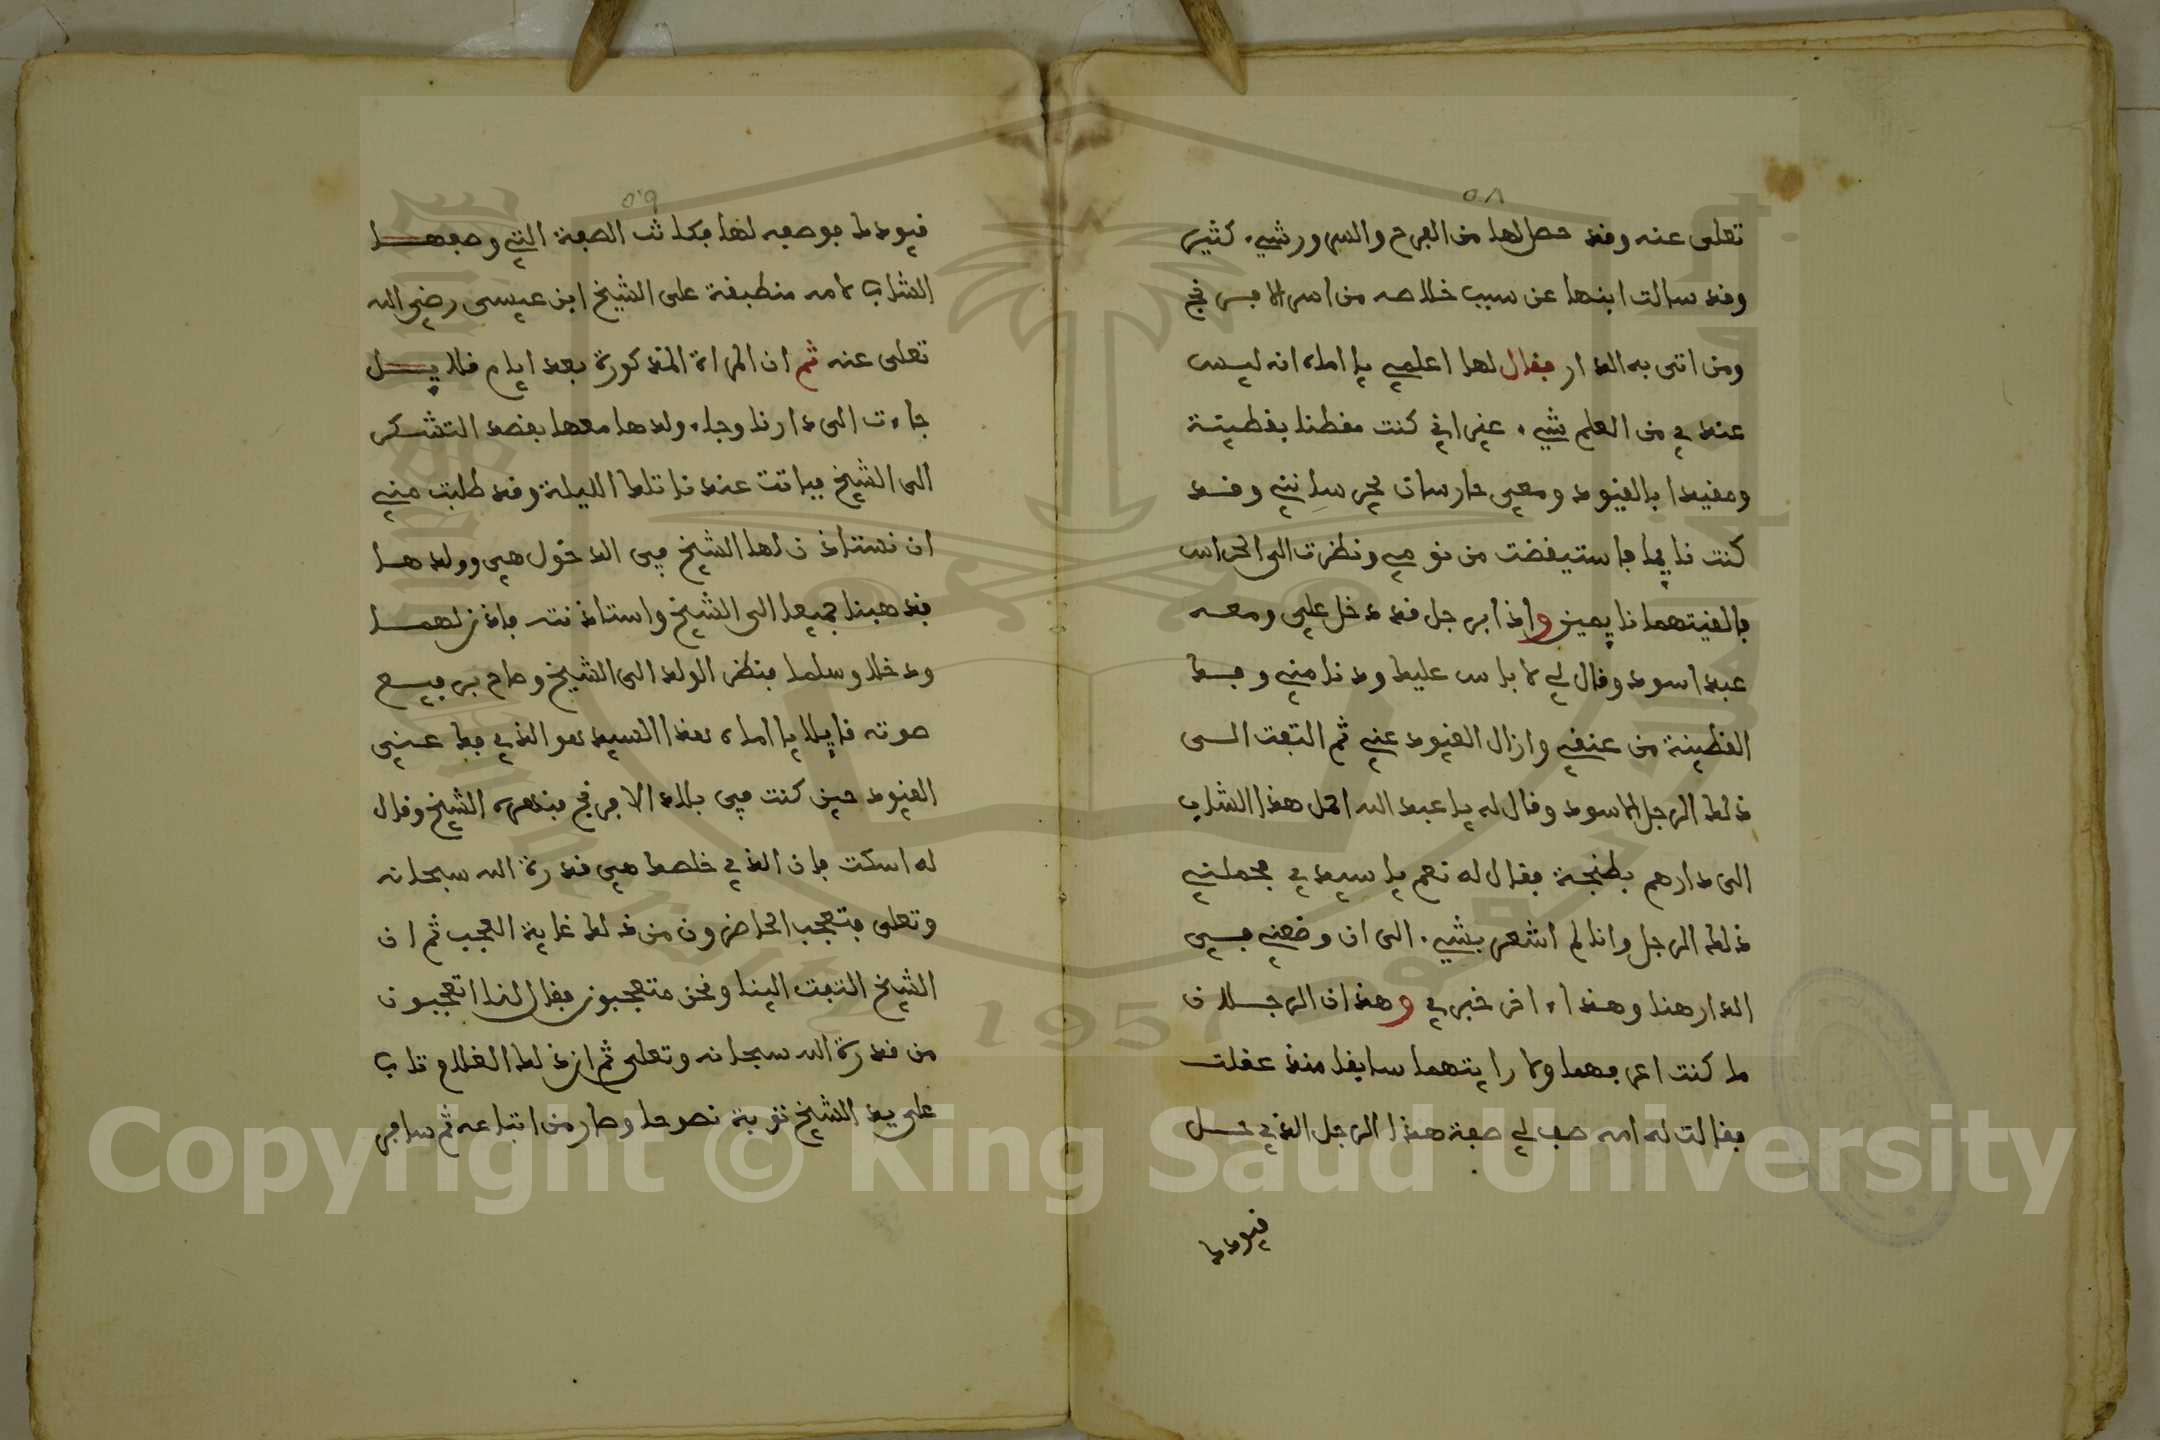 ٥٨
تعلى عنه وقد حصل لها من الفرح والسرور شيء كثير
وقد سالت ابنها عن سبب خلاصه من اسر الافرنج
ومن اتى به الدار فقال لها اعلمي يا اماه انه ليس
عندي من العلم شيء غير اني كنت مقطنا بقطينة
ومقيدا بالقيود ومعي حارسان يحرساني وقد
كنت نايما فاستيقضت من نومي ونظرت الى الحراس
فالفيتهما نايمين واذا برجل قد دخل علي ومعه
عبد اسود وقال لي لا باس عليك ودنا مني وفك
القطينة من عنقي وازال القيود عني ثم التفت الى
ذلك الرجل الاسود وقال له يا عبد الله احمل هذا الشاب
الى دارهم بطنجة فقال له نعم يا سيدي فحملني
ذلك الرجل وانا لم اشعر بشيء الى ان وضعني في
الدار هنا وهذا اخر خبري وهذان الرجلان
ما كنت اعرفهما ولا رايتهما سابقا منذ عقلت
فقالت له امه صف لي صفة هذا الرجل الذي حل
قيودك
٥٩
قيودك فوصفه لها فكانت الصفة التي وصفها
الشاب لامه منطبقة على الشيخ ابن عيسى رضي الله
تعلى عنه ثم ان المراة المذكورة بعد ايام قلايل
جاءت الى دارنا وجاء ولدها معها بقصد التشكر
الى الشيخ فباتت عندنا تلك الليلة وقد طلبت مني
ان نستاذن لها الشيخ في الدخول هي وولدها
فذهبنا جميعا الى الشيخ واستاذنته فاذن لهما
ودخلا وسلما فنظر الولد الى الشيخ وصاح برفيع
صوته قايلا يا اماه هذا السيد هو الذي فك عني
القيود حين كنت في بلاد الافرنج فنهره الشيخ وقال
له اسكت فان الذي خلصك هي قدرة الله سبحانه
وتعلى فتعجب الحاضرون من ذلك غاية العجب ثم ان
الشيخ التفت الينا ونحن متعجبون فقال لنا اتعجبون
من قدرة الله سبحانه وتعلى ثم ان ذلك الغلام تاب
على يد الشيخ توبة نصوحا وصار من اتباعه ثم سافر
Copyright © King Saud University
1957